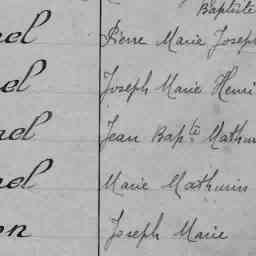 Baptiste
el Pierre Marie Joseph
el Joseph Marie Henri
el Jean Bapte Mathu
el Marie Mathurin
on Joseph Marie